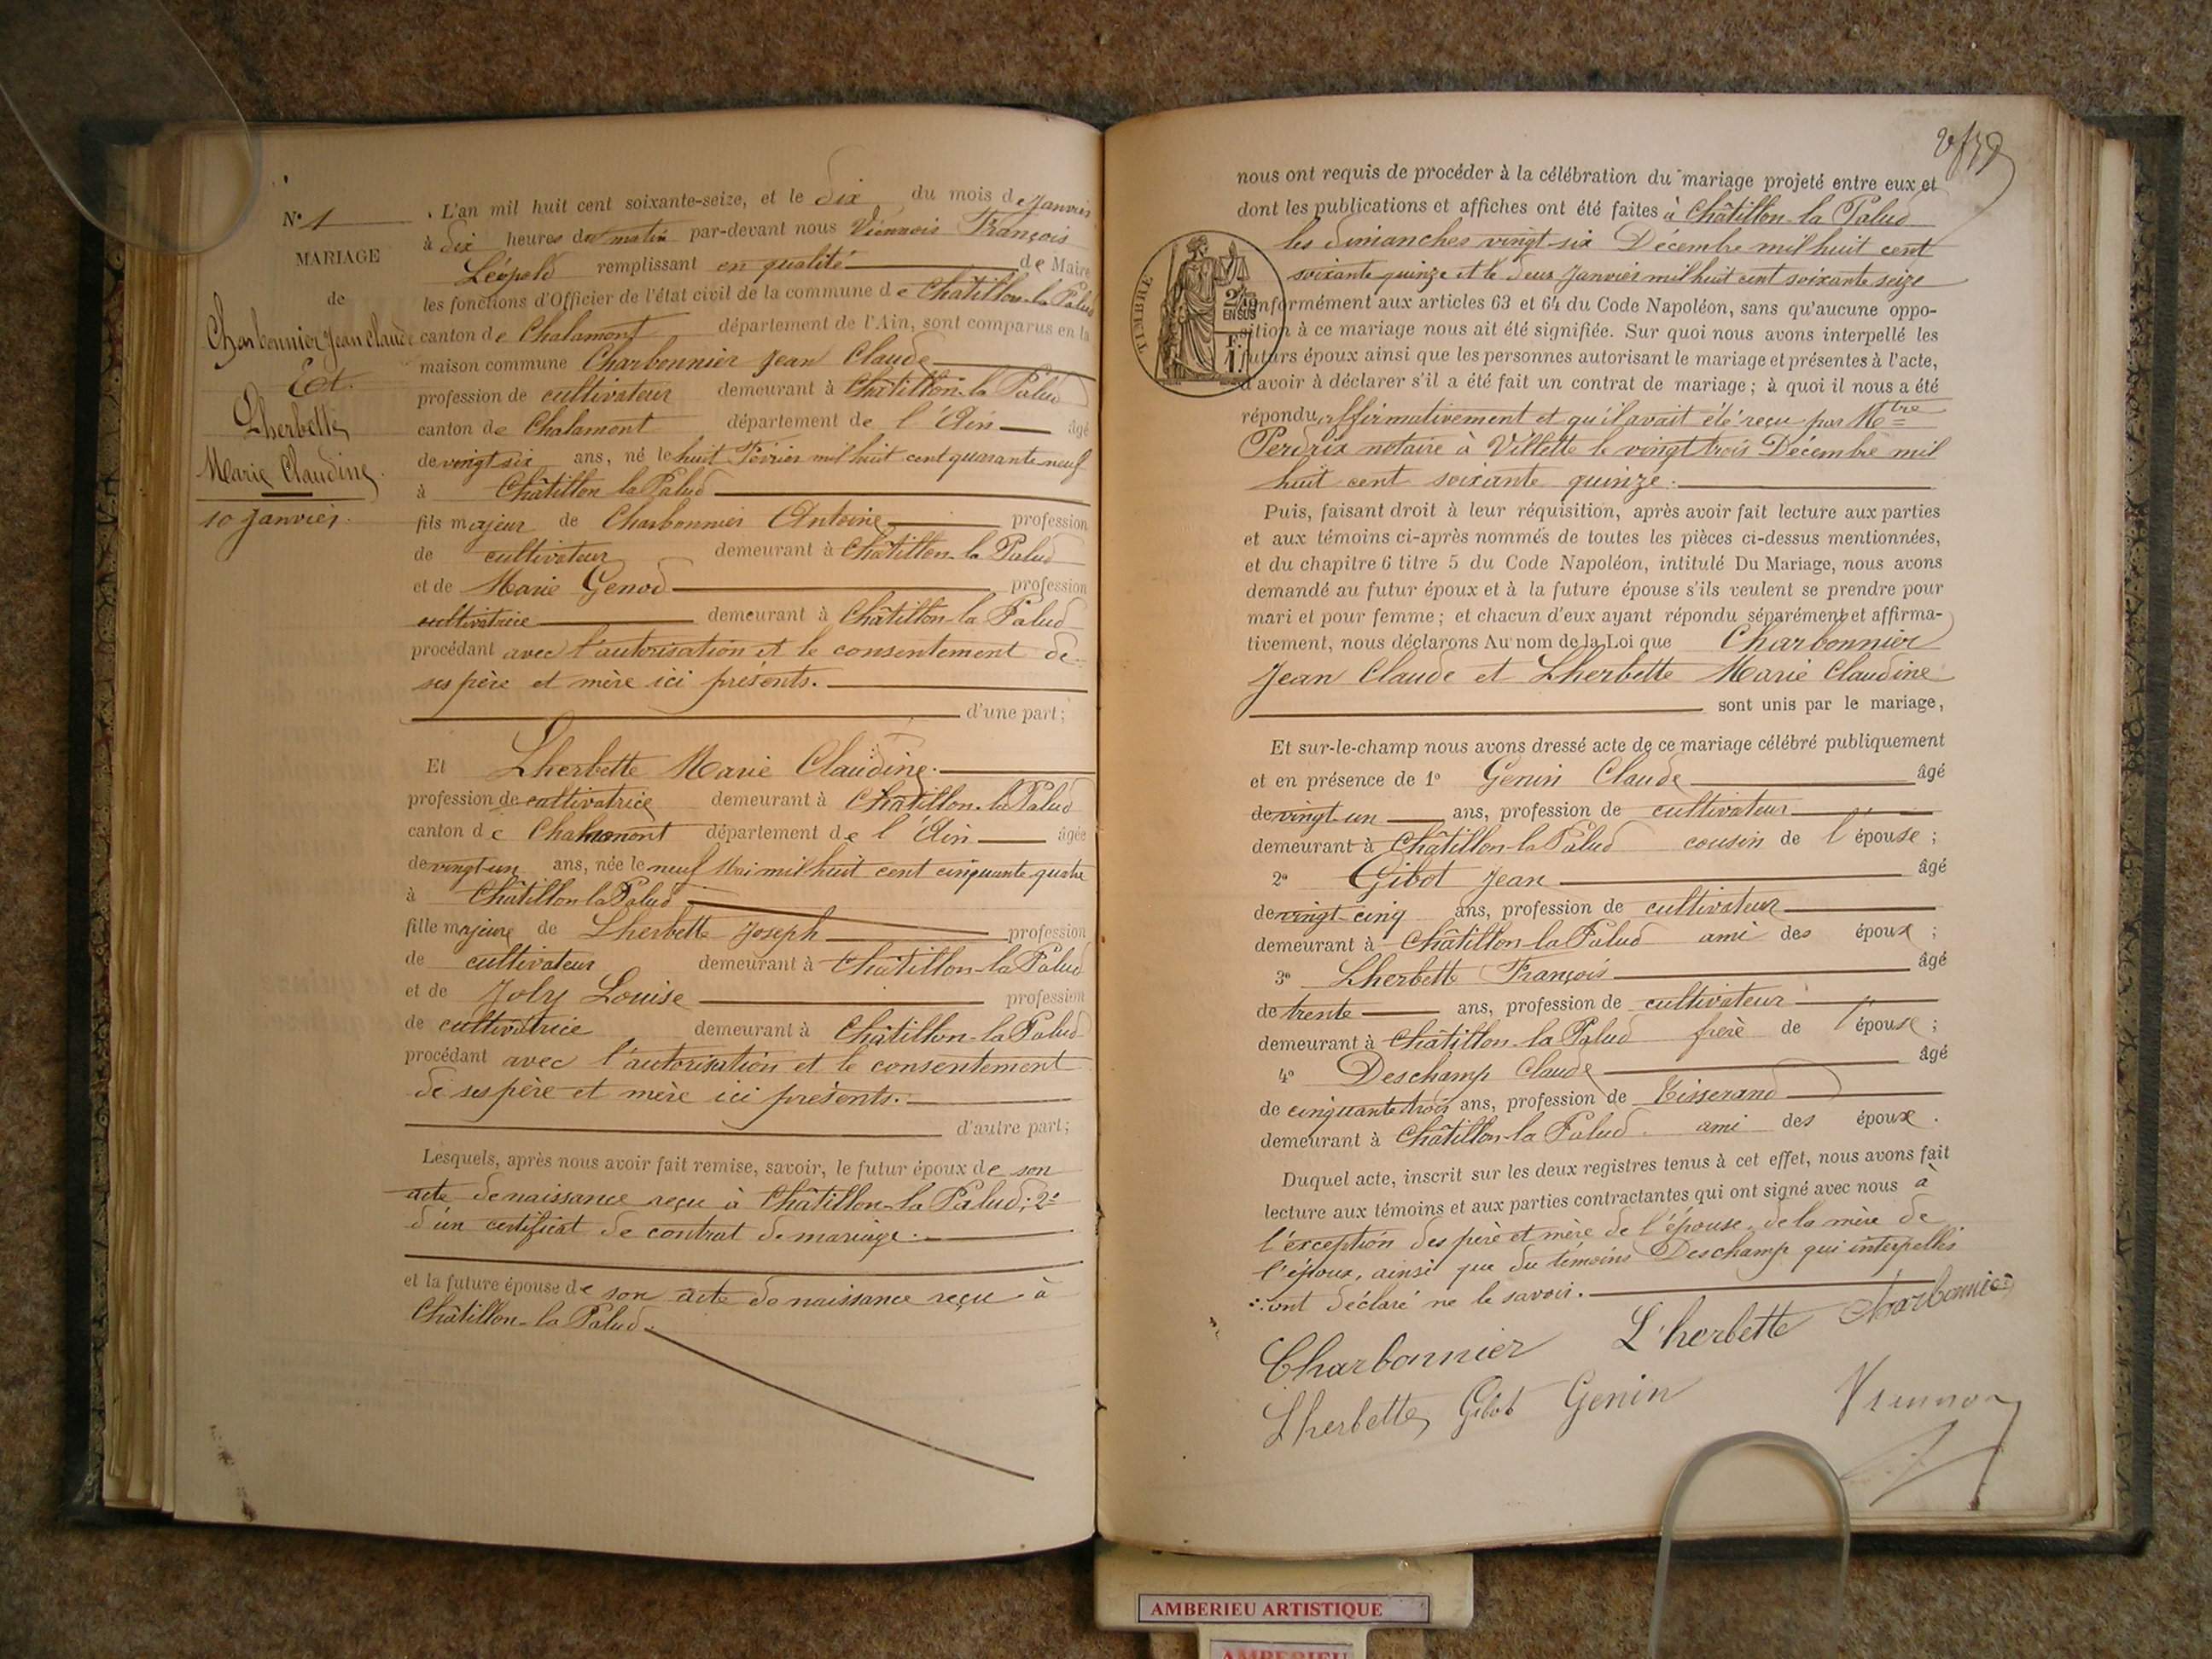 N° 1
MARIAGE
de
Charbonnier Jean Claude
Et
Lherbette
Marie Claudine.
10 Janvier.
L'an mil huit cent soixante-seize, et le dix du mois de Janvier
à dix heures du matin par-devant nous Viennois François
Léopold remplissant en qualité de Maire
les fonctions d'Officier de l'état civil de la commune de Châtillon-la Palud
canton de Chalamont département de l'Ain, sont comparus en la
maison commune Charbonnier Jean Claude
profession de cultivateur demeurant à Châtillon-la Palud
canton de Chalamont département de l'Ain âgé
de vingt six ans, né le huit Février mil huit cent quarante neuf
à Châtillon la Palud
fils majeur de Charbonnier Antoine profession
de cultivateur demeurant à Châtillon-la Palud
et de Marie Genod profession
cultivatrice demeurant à Châtillon-la Palud
procédant avec l'autorisation et le consentement de
ses père et mère ici présents.
d'une part;
Et Lherbette Marie Claudine.
profession de cultivatrice demeurant à Châtillon-la Palud
canton de Chalamont département de l'Ain âgée
de vingt-un ans, née le neuf Mai mil huit cent cinquante quatre
à Châtillon la Palud
fille majeure de Lherbette Joseph profession
de cultivateur demeurant à Châtillon-la Palud
et de Joly Louise profession
de cultivatrice demeurant à Châtillon-la Palud
procédant avec l'autorisation et le consentement
de ses père et mère ici présents.
d'autre part;
Lesquels, après nous avoir fait remise, savoir, le futur époux de son
acte de naissance reçu à Châtillon-la Palud; 2°
d'un certificat de contrat de mariage.
et la future épouse de son acte de naissance reçu à
Châtillon-la Palud.
nous ont requis de procéder à la célébration du mariage projeté entre eux et
dont les publications et affiches ont été faites à Châtillon-la Palud
les dimanches vingt-six Décembre mil huit cent
soixante quinze et le deux Janvier mil huit cent soixante seize
TIMBRE
2/10
EN SUS
1F
conformément aux articles 63 et 64 du Code Napoléon, sans qu'aucune oppo-
sition à ce mariage nous ait été signifiée. Sur quoi nous avons interpellé les
futurs époux ainsi que les personnes autorisant le mariage et présentes à l'acte,
d'avoir à déclarer s'il a été fait un contrat de mariage; à quoi il nous a été
répondu affirmativement et qu'il avait été reçu par Mtre
Perdrix notaire à Villette le vingt trois Décembre mil
huit cent soixante quinze.
Puis, faisant droit à leur réquisition, après avoir fait lecture aux parties
et aux témoins ci-après nommés de toutes les pièces ci-dessus mentionnées,
et du chapitre 6 titre 5 du Code Napoléon, intitulé Du Mariage, nous avons
demandé au futur époux et à la future épouse s'ils veulent se prendre pour
mari et pour femme; et chacun d'eux ayant répondu séparément et affirma-
tivement, nous déclarons Au nom de la Loi que Charbonnier
Jean Claude et Lherbette Marie Claudine
sont unis par le mariage,
Et sur-le-champ nous avons dressé acte de ce mariage célébré publiquement
et en présence de 1° Genin Claude âgé
de vingt-un ans, profession de cultivateur
demeurant à Châtillon-la Palud cousin de l'épouse;
2° Gibot Jean âgé
de vingt-cinq ans, profession de cultivateur
demeurant à Châtillon-la Palud ami des époux;
3° Lherbette François âgé
de trente ans, profession de cultivateur
demeurant à Châtillon-la Palud frère de l'épouse;
4° Deschamp Claude âgé
de cinquante trois ans, profession de Tisserand
demeurant à Châtillon-la Palud. ami des époux.
Duquel acte, inscrit sur les deux registres tenus à cet effet, nous avons fait
lecture aux témoins et aux parties contractantes qui ont signé avec nous à
l'exception des père et mère de l'épouse, de la mère de
l'époux, ainsi que du témoins Deschamp qui interpellés
ont déclaré ne le savoir.
Charbonnier L'herbette Charbonnier
Lherbette Gibot Genin
AMBERIEU ARTISTIQUE
AMBERIEU